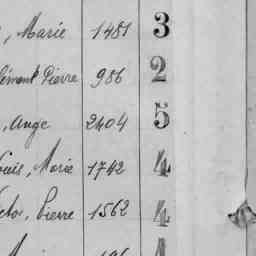 , Marie 1481 3
lément Pierre 986 2
, Ange 2404 5
ouis, Marie 1742 4
ctor, Pierre 1562 4